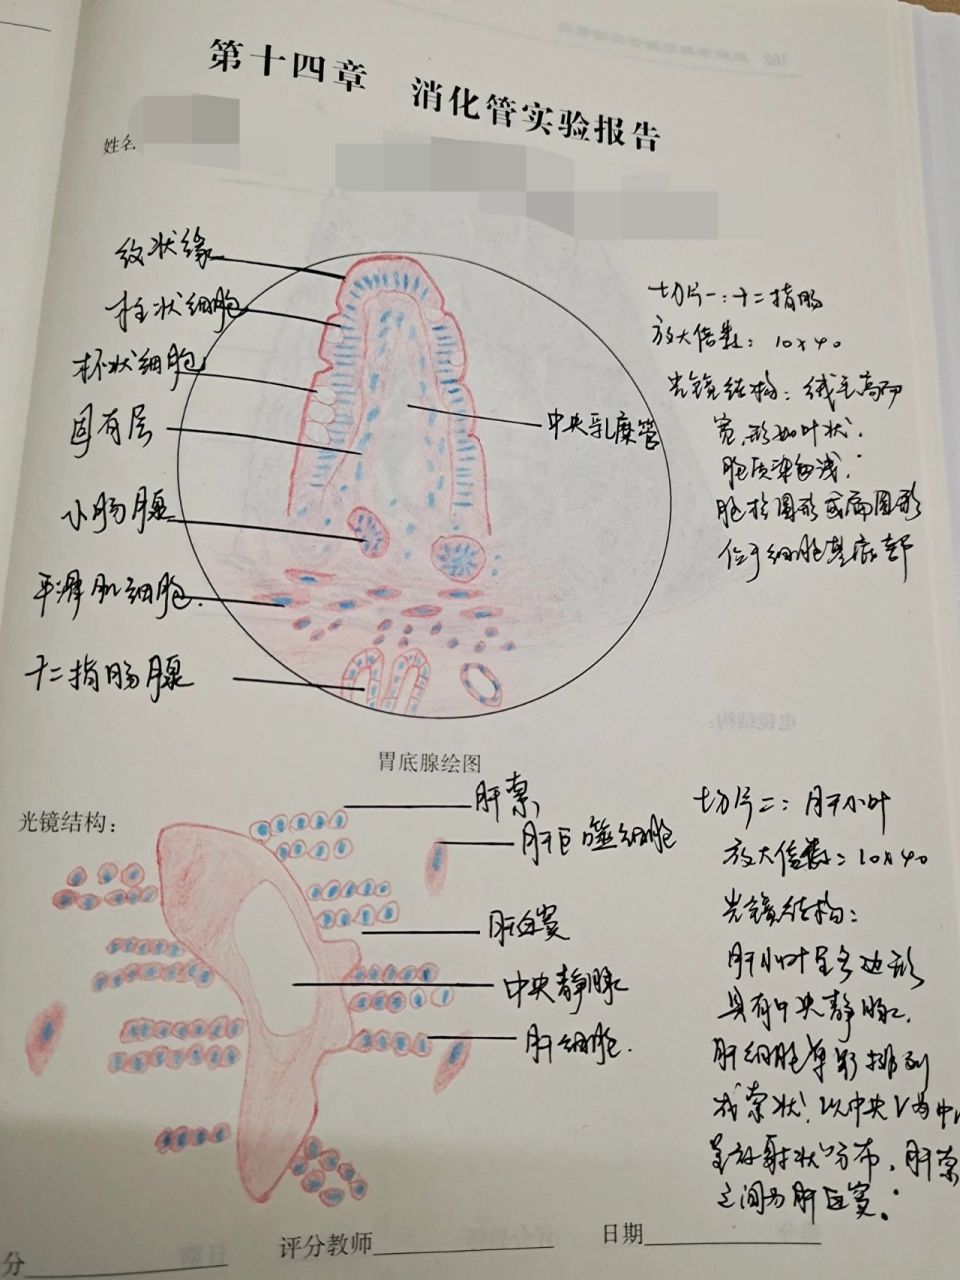 第十四章 消化管实验报告
姓名
纹状缘
柱状细胞
杯状细胞
固有层
小肠腺
平滑肌细胞.
十二指肠腺
中央乳糜管
切片一:十二指肠
放大倍数: 10×40
光镜结构: 绒毛高而
宽,形如叶状.
胞质染色浅.
胞核圆形或扁圆形
位于细胞基底部
胃底腺绘图
光镜结构:
肝索
肝巨噬细胞
肝血窦
中央静脉
肝细胞.
切片二: 肝小叶
放大倍数: 10×40
光镜结构:
肝小叶呈多边形
具有中央静脉.
肝细胞单行排列
成索状,以中央V为中
呈放射状分布.肝索
之间为肝血窦.
分
评分教师
日期
电镜结构: